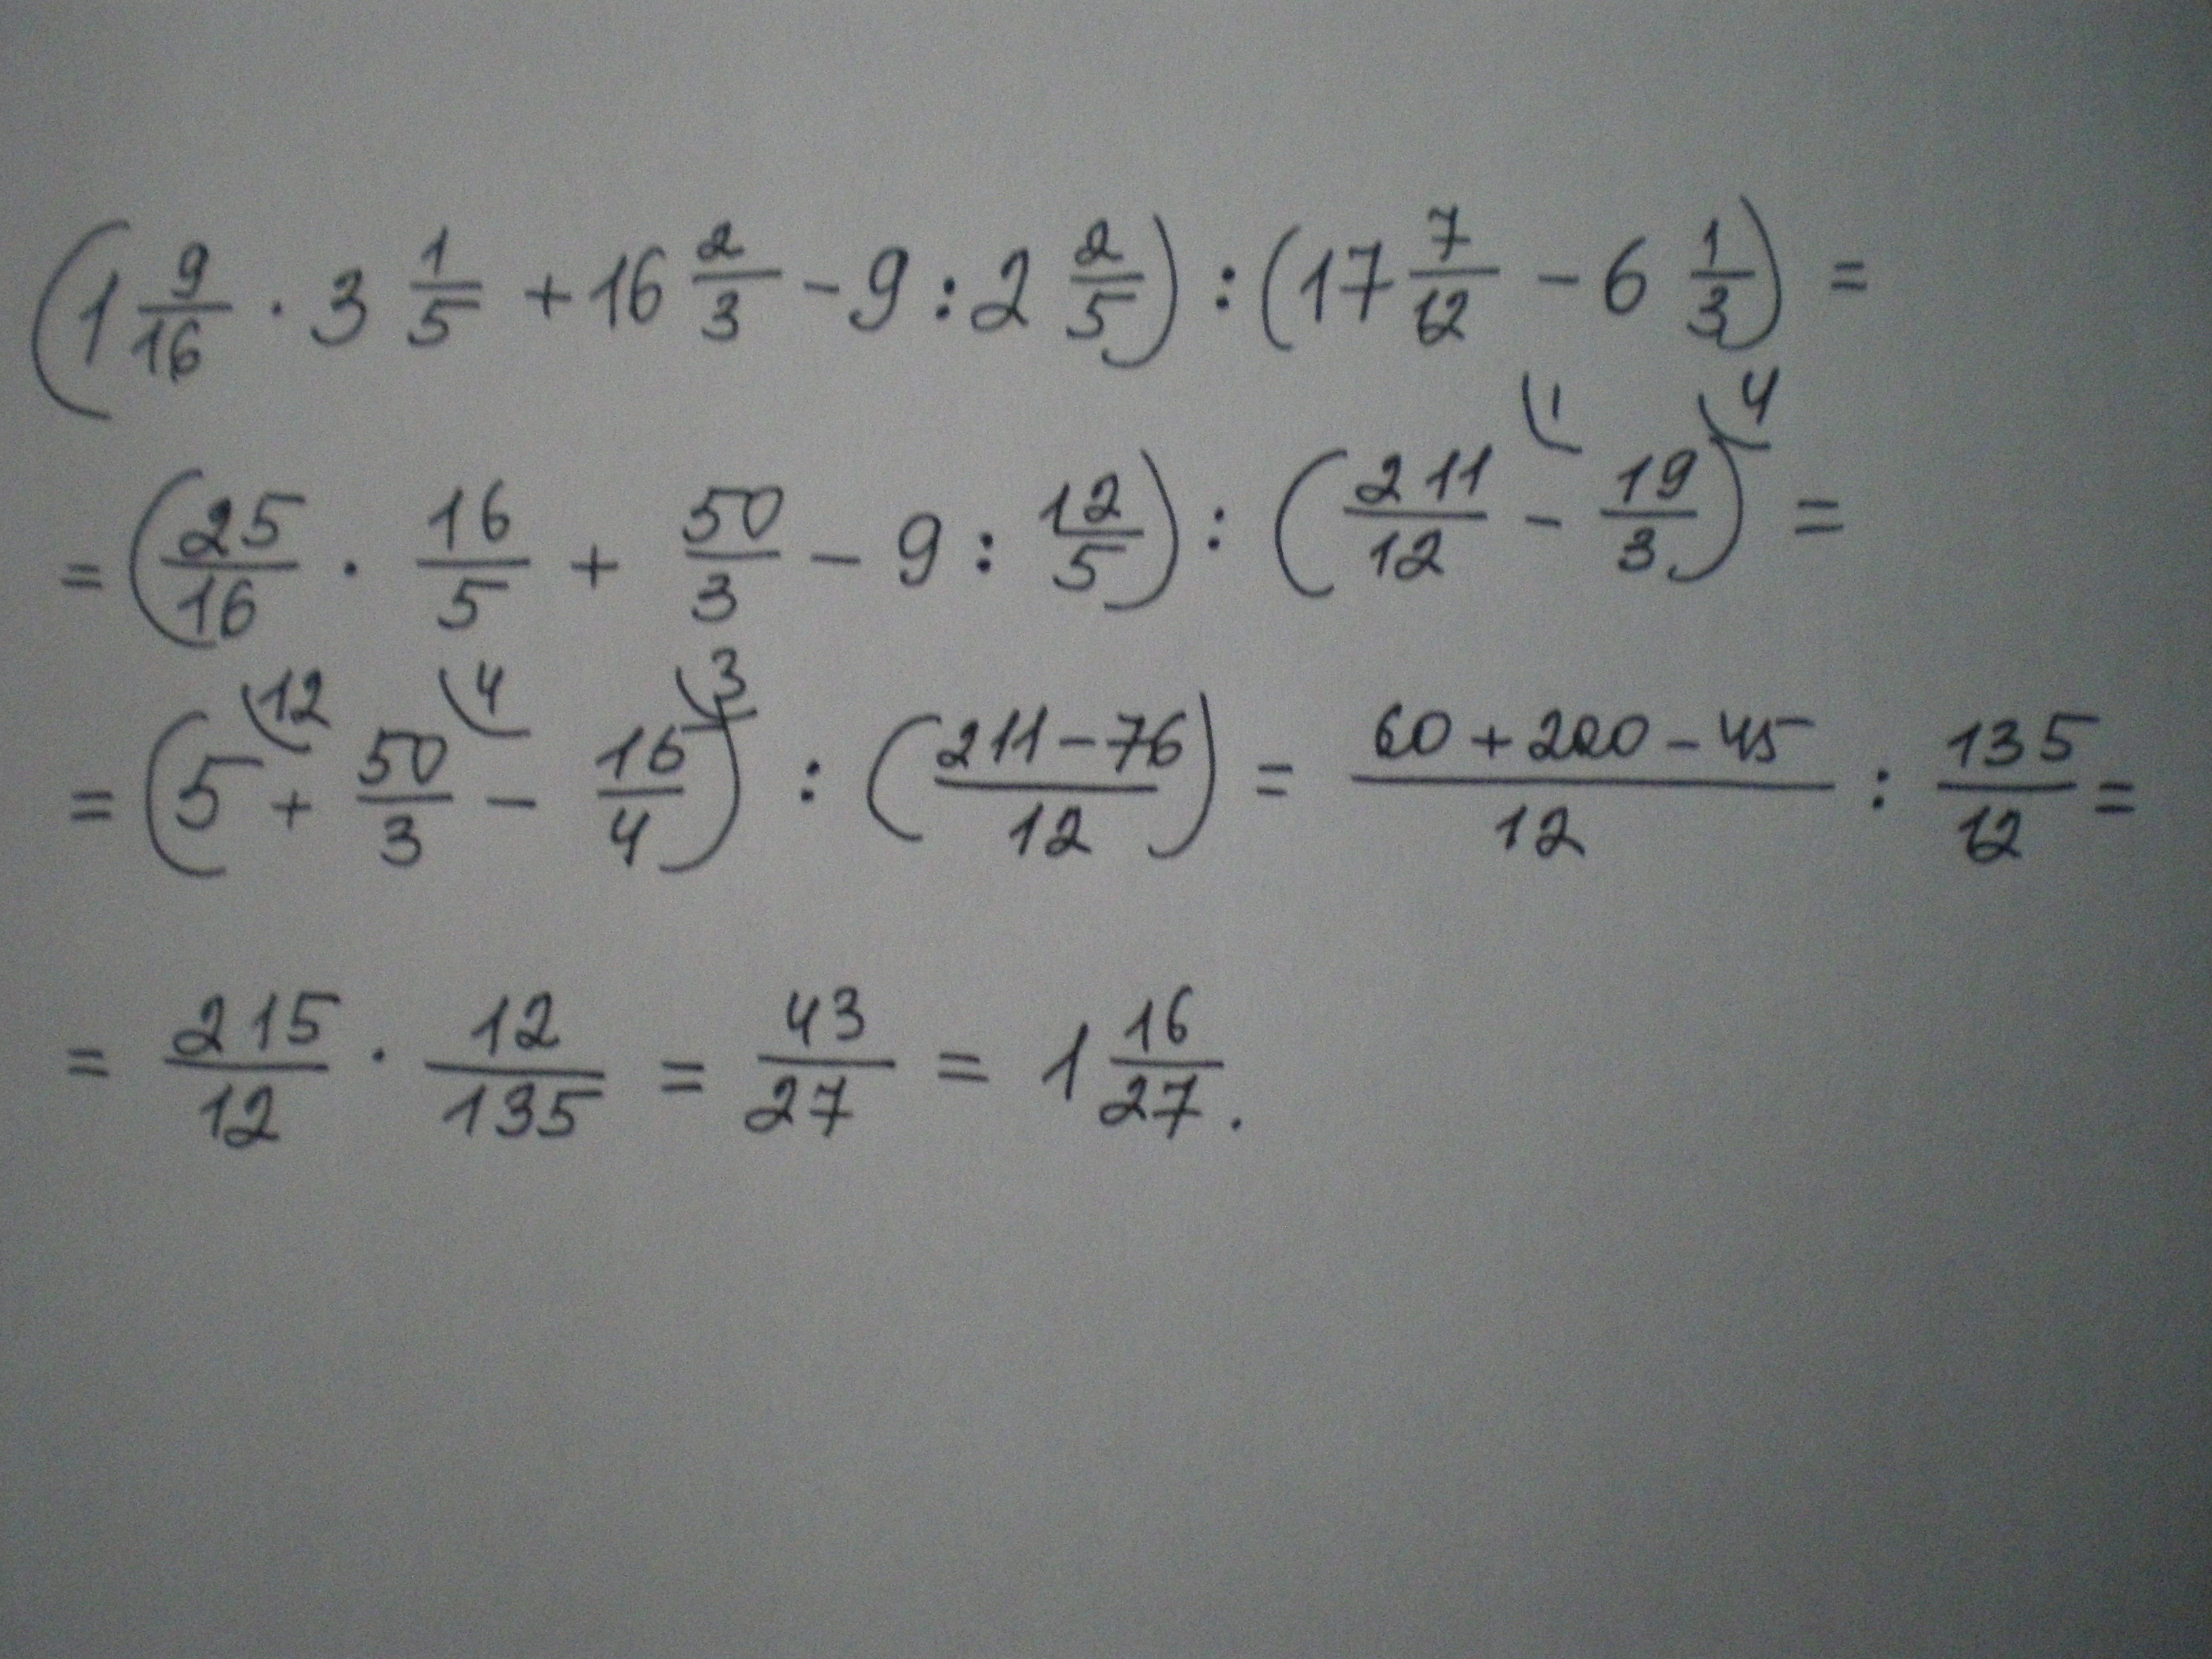 (1 9/16 · 3 1/5 + 16 2/3 - 9 : 2 2/5) : (17 7/12 - 6 1/3) =
= (25/16 · 16/5 + 50/3 - 9 : 12/5) : (211/12 (1 - 19/3 (4) =
= (5 (12 + 50/3 (4 - 15/4 (3) : (211-76/12) = 60+200-45/12 : 135/12 =
= 215/12 · 12/135 = 43/27 = 1 16/27.